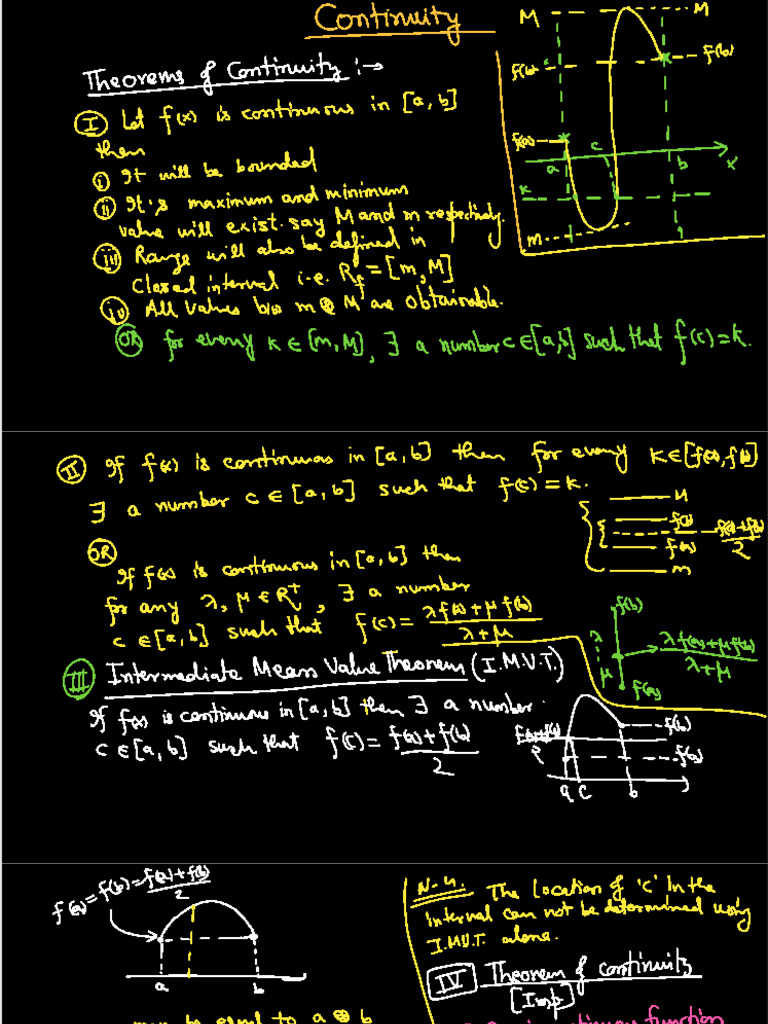 Continuity
Theorems of Continuity :→
I Let f(x) is continuous in [a, b]
then
i It will be bounded
ii It's maximum and minimum
value will exist. say M and m respectively.
iii Range will also be defined in
closed interval i.e. Rf = [m, M]
iv All values b/w m & M are obtainable.
OR for every k ∈ [m, M], ∃ a number c ∈ [a, b] such that f(c) = k.
M
M
f(b)
f(b)
f(a)
a
c
b
x
k
m
II If f(x) is continuous in [a, b] then for every k ∈ [f(a), f(b)]
∃ a number c ∈ [a, b] such that f(c) = k.
OR
If f(x) is continuous in [a, b] then
for any λ, μ ∈ R⁺, ∃ a number
c ∈ [a, b] such that f(c) = (λf(a) + μf(b))/(λ + μ)
M
f(b)
(f(a)+f(b))/2
f(a)
m
f(b)
λ
(λf(a) + μf(b))/(λ + μ)
μ
f(a)
III Intermediate Mean Value Theorem (I.M.V.T.)
If f(x) is continuous in [a, b] then ∃ a number
c ∈ [a, b] such that f(c) = (f(a) + f(b))/2
f(b)
(f(a)+f(b))/2
f(a)
a c b
f(a) = f(b) = (f(a) + f(b))/2
a b
may be equal to a or b
N-4. The Location of 'c' In the
interval can not be determined using
I.M.V.T. alone.
IV Theorem of continuity
[Imp]
continuous function